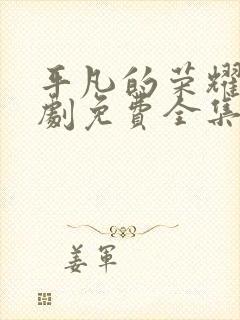 平凡的荣耀
劇免費全集
姜軍